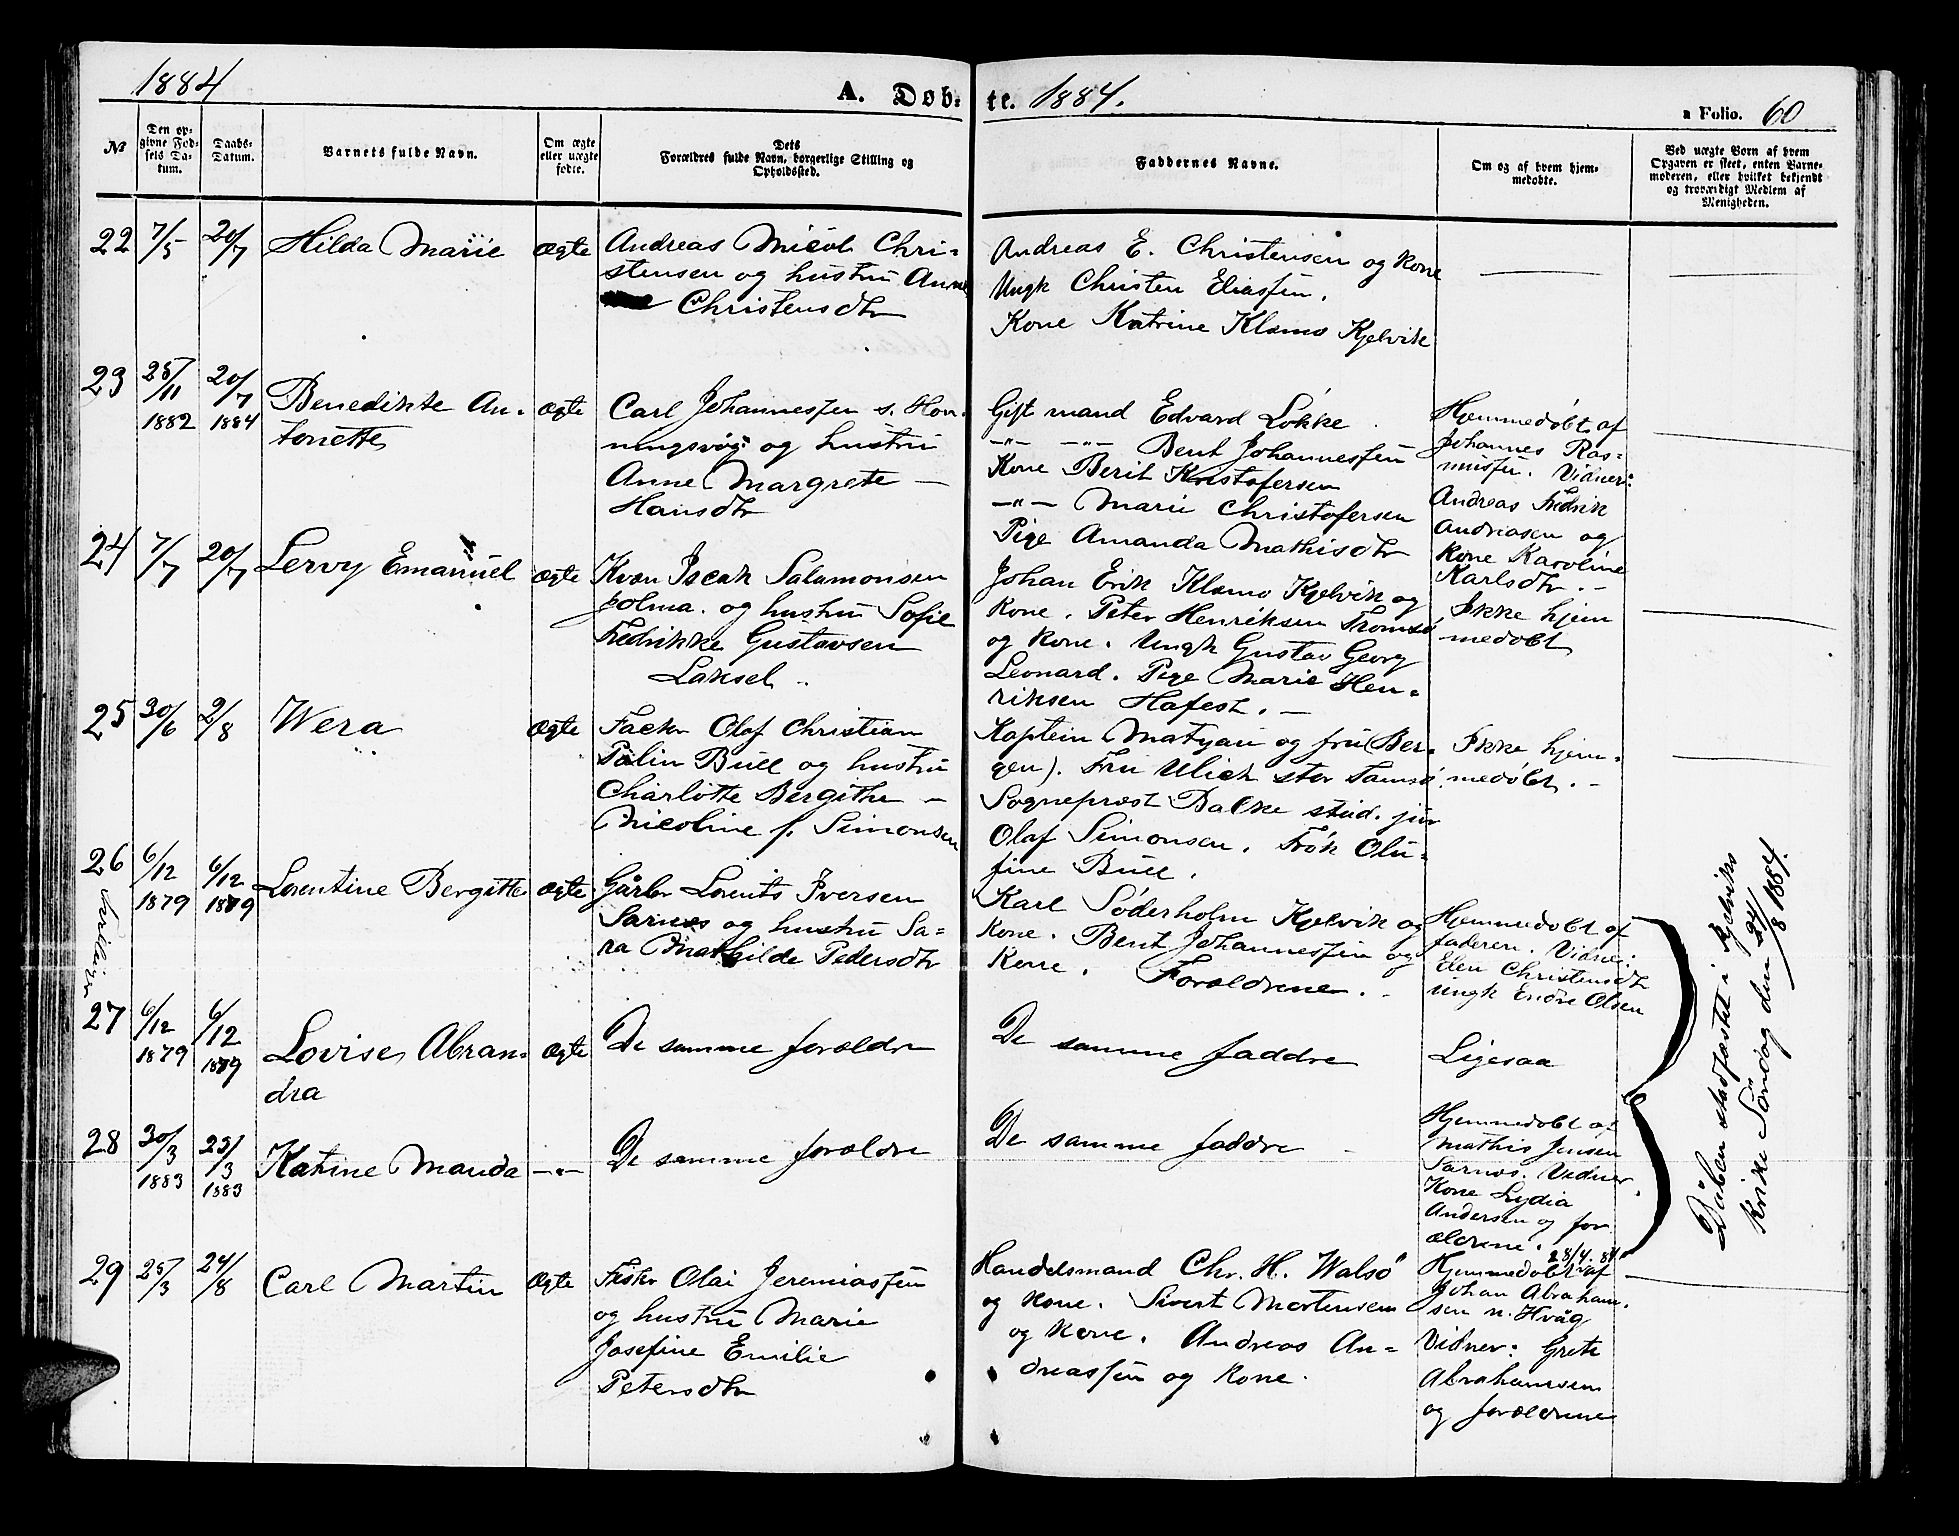 1884
A. Døb-
te. 1884.
a Folio. 60
№
Den op-
givne Fød-
sels Da-
tum.
Daabs-
Datum.
Barnets fulde Navn.
Om ægte
eller uægte
fødte.
Dets
Forældres fulde Navn, borgerlige Stilling og
Opholdssted.
Faddernes Navne.
Om og af hvem hjem-
medøbte.
Ved uægte Børn af hvem
Opgaven er skeet, enten Barne-
moderen, eller hvilket bekjendt
og troværdigt Medlem af
Menigheden.
22
7/5
20/7
Hilda Marie
Ægte
Andreas Nicol Chri-
stensen og hustru Anne
Christensdtr
Andreas E. Christensen og Kone
Ungk Christen Eliassen.
Kone Katrine Klemo Kjelvik
23
25/11
1882
20/7
1884
Benedikte An-
tonette
ægte
Carl Johannessen s. Hon-
ningsvåg og hustru
Anne Margrete -
Hansdtr
Gift mand Edvard Løkke
-"- -"- Bent Johannessen
Kone Berit Kristofersen
-"- Marie Christofersen
Pige Amanda Mathisdtr
Hjemmedøbt af
Johannes Ras-
mussen. Vidner:
Andreas Fredrik
Andreasen og
Kone Karoline
Karlsdtr. -
24
7/7
20/7
Lervy Emanuel
ægte
Kvæn Iscak Salamonsen
Jolma. og hustru Sofie
Fredrikke Gustavsen
Laksel..
Johan Erik Klemo Kjelvik og
Kone. Peter Henriksen Tromsø
og Kone. Ungk Gustav Georg
Leonard. Pige Marie Hen-
riksen Hafest. -
Ikke hjem
medøbt
25
30/6
2/8
Wera
Ægte
Olaf Christian
Palin Bull og hustru
Charlotte Bergithe -
Nicoline f. Simonsen
Kaptein og fru (Ber-
gen). Fru Ulich Tamsø
Sogneprest Balke stud. jur
Olaf Simonsen. Frøk Olu-
fine Bull.
Ikke hjem-
medøbt. -
26
6/12
1879
6/12
1879
Lorentine Bergitte
ægte
Gårbr Lorents Iversen
Sarnes og hustru Sa-
ra Mathilde Pedersdtr
Karl Söderholm Kjelvik og
Kone. Bent Johannessen og
Kone. Forældrene. -
Hjemmedøbt af
faderen. Vidner:
Elen Christensdtr
Ungk Endre Olsen
27
6/12
1879
6/12
1879
Lovise Abran-
dra
ægte
De samme forældre
De samme faddre
Ligesaa
28
30/3
1883
25/3
1883
Katrine Manda
-"-
De samme forældre
De samme faddre
Hjemmedøbt af
Mathis Jensen
Sarnes. Vidner.
Kone Lydia
Andersen og for
ældrene.
Dåben stadfæstet i Kjelviks
Kirke Søndag den 24/8 1884.
29
25/3
24/8
Carl Martin
Ægte
Fisker Olai Jeremiassen
og hustru Marie
Josefine Emilie
Petersdtr
Handelsmand Chr. H. Walsø
og Kone. Sivert Mortensen
og Kone. Andreas An-
dreassen og Kone.
28/4. 84
Hjemmedøbt af
Johan Abraham-
sen n. Hvåg
Vidner: Grete
Abrahamsen
og forældrene